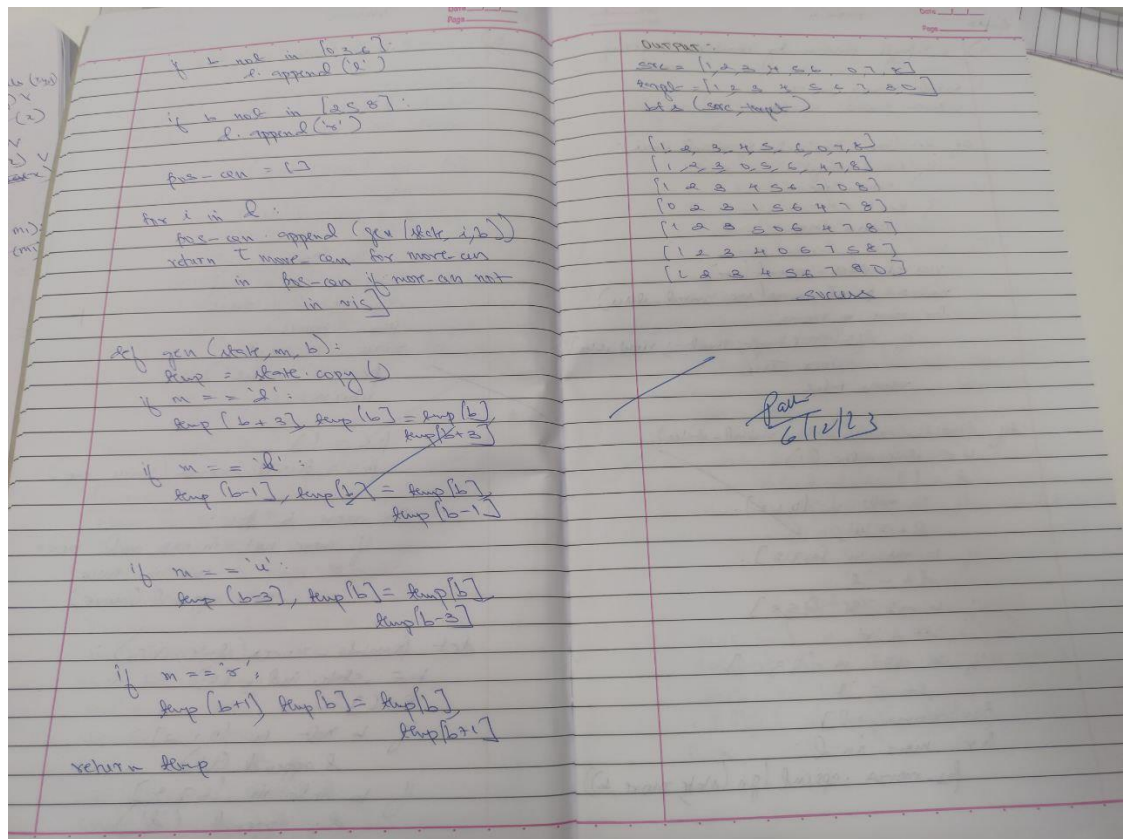 if b not in [0 3 6]:
l. append ('l')
if b not in [2 5 8]:
l. append ('r')
pos-can = []
for i in l:
pos-can. append (gen (state, i, b))
return [ move-can for move-can
in pos-can if move-can not
in vis]
def gen (state, m, b):
temp = state. copy ()
if m = = 'd':
temp [b+3], temp [b] = temp [b],
temp[b+3]
if m = = 'l':
temp [b-1], temp [b] = temp [b],
temp [b-1]
if m = = 'u':
temp (b-3], temp [b] = temp [b],
temp[b-3]
if m == 'r':
temp (b+1) temp [b] = temp [b],
temp[b+1]
return temp
Date
Page
OUTPUT:
src = [1, 2, 3, 4, 5, 6, 0, 7, 8]
= [1 2 3 4 5 6 7, 8 0]
bfs (src,
[1, 2, 3, 4, 5, 6, 0, 7, 8]
[1, 2, 3 0, 5, 6, 4, 7, 8]
[1 2 3 4 5 6 7 0 8]
[0 2 3 1 5 6 4 7 8]
[1 2 3 5 0 6 4 7 8]
[1 2 3 4 0 6 7 5 8]
[1 2 3 4 5 6 7 8 0]
success
6/12/23